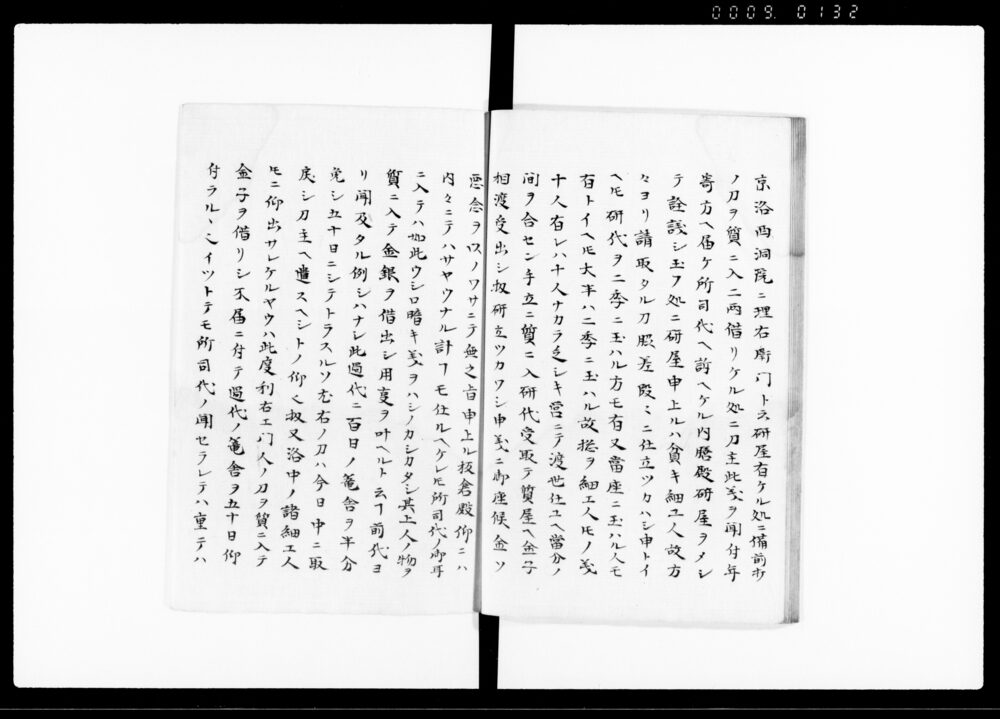 0009. 0132
京洛西洞院ニ理右衛門ト云研屋有ケル処ニ備前物
ノ刀ヲ質ニ入二両借リケル処ニ刀主此義ヲ聞付年
寄方ヘ届ケ所司代ヘ訴ヘケル内膳殿研屋ヲメシ
テ詮議シ玉フ処ニ研屋申上ルハ貧キ細工人故方
々ヨリ請取タル刀脇差段々ニ仕立ツカハシ申トイ
ヘㇳモ研代ヲ二季ニ玉ハル方モ有又當座ニ玉ハル人モ
有トイヘㇳモ大半ハ二季ニ玉ハル故惣ヲ細工人ㇳモノ義
十人有レハ十人ナカラ乏シキ営ニテ渡世仕ユヘ當分ノ
間ヲ合セン手立ニ質ニ入研代受取テ質屋ヘ金子
相渡受出シ扨研立ツカワシ申義ニ御座候全ツ
悪念ヲ以ノワサニテ無之旨申上ル板倉殿仰ニハ
内々ニテハサヤウナル計ヿモ仕ルヘケレㇳモ所司代ノ御耳
ニ入テハ如此ウシロ暗キ義ヲハシノカシカタシ其上人ノ物ヲ
質ニ入テ金銀ヲ借出シ用事ヲ叶ヘルト云ヿ前代ヨ
リ聞及タル例シハナシ此過代ニ百日ノ篭舎ヲ半分
免シ五十日ニシテトラスルソ尤右ノ刀ハ今日中ニ取
戻シ刀主ヘ遣スヘシトノ仰也扨又洛中ノ諸細工人
ㇳモニ仰出サレケルヤウハ此度利右エ門人ノ刀ヲ質ニ入テ
金子ヲ借リシ不届ニ付テ過代ノ篭舎ヲ五十日仰
付ラルヽ也イツトテモ所司代ノ聞セラレテハ重テハ